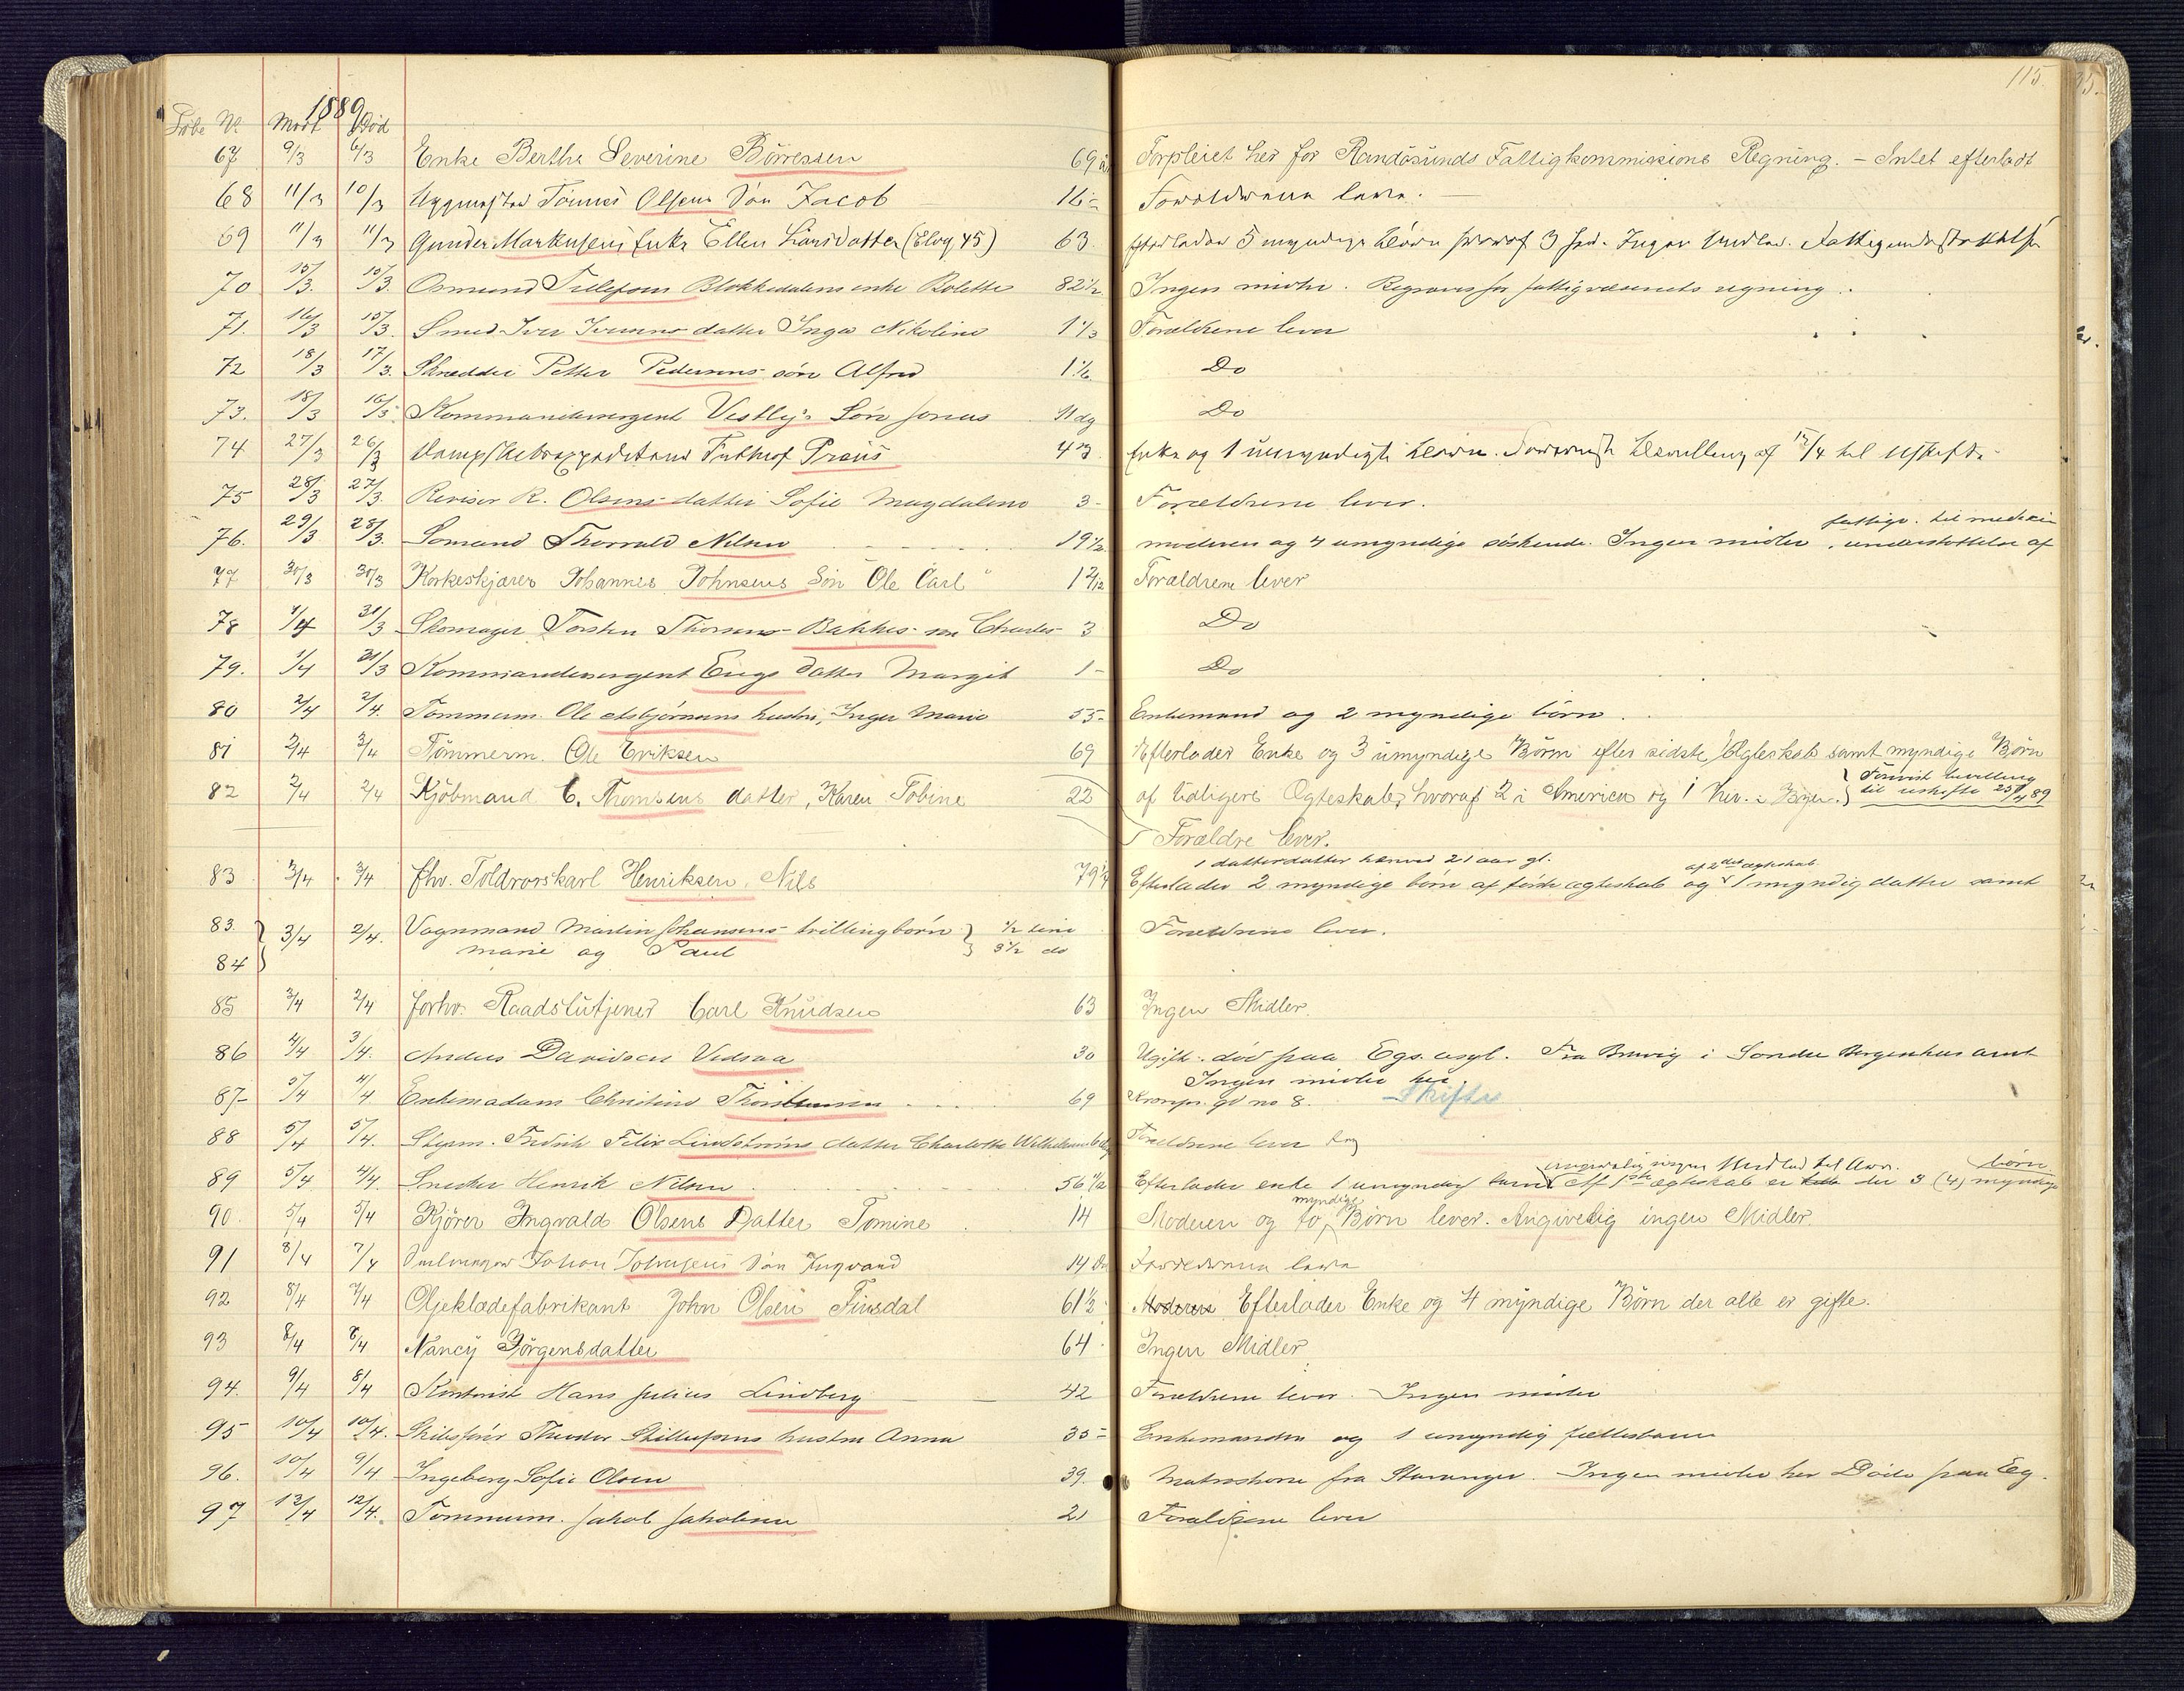 115.
1889
Løbe No. Modt Død
67 9/3 6/3 Enke Berthe Severine Börressen 69 år Forpleiet her for Randösunds Fattigkommissions Regning. – Intet efterladt
68 11/3 10/3 Tönnes Olsens Sön Jacob 16 – Forældrene lever.
69 11/3 11/3 Gunder Markusens Enke Ellen Larsdatter (Elvg 45) 63 Efterlader 5 myndige Börn hvoraf 3 Ingen Midler. Fattigunderstöttelse
70 15/3. 10/3. Osmund Tellefsens Blokkedalens enke Bolette 82 1/2 Ingen midler. Begraves for fattigvæsenets regning.
71. 16/3 15/3. Smed Iver Iversens datter Inga Nikoline 1 1/3 Forældrene lever
72 18/3 17/3. Skrædder Petter Pedersens sön Alfred 1 1/6 Do
73. 18/3 16/3 Kommandersergent Vestbys Sön Jonas 11 dg Do
74 27/3 26/3 Frithjof Preüs 43 Enke og 1 umyndigt Barn. Bevilling af 12/4 til Uskifte
75 28/3 27/3. Revisor R. Olsens datter Sofie Magdalene 3 – Forældrene lever.
76. 29/3 28/3. Sömand Thorvald Nilsen 19 1/2 moderen og 4 umyndige söskende. Ingen midler, understöttelse af
fattigv. til medicin
77 30/3 30/3 Korkeskjærer Johannes Johnsens Sön Ole Carl 1 2/12 Forældrene lever
78 1/4 31/3 Skomager Torsten Thorsens Bakkes sön Charles 3 Do
79. 1/4 31/3 Kommandersergent Engs datter Margit 1 – Do
80 2/4 2/4. Tömmerm. Ole Asbjörnsens hustru, Inger Marie 55 – Enkemand og 2 myndige börn.
81 2/4 2/4 Tömmerm. Ole Eriksen 69 Efterlader Enke og 3 umyndige Börn efter sidste Ægteskab samt myndige Börn
82 2/4 2/4 Kjöbmand C. Thomsens datter, Karen Tobine 22 af tidligere Ægteskab, hvoraf 2 i America og 1 her i Byen. } Fornöd. bevilling
til uskifte 25/4 89
Forældre lever.
1 datterdatter henved 21 aar gl. af 2det ægteskab
83 3/4 3/4 fhv. Toldrorskarl Henriksen, Nils 79 1/2 Efterlader 2 myndige börn af förste ægteskab og 1 myndig datter samt
83. } 3/4 2/4. Vognmand Martin Johansens trillingbörn } 1/2 time Forældrene lever.
84 } Marie og Paul } 3 1/2 do
85 3/4 2/4 forhv. Raadstutjener Carl Knudsen 63 Ingen Midler.
86 4/4 3/4. Anders Davidsen Vedsaa 30 Ugift. död paa Egs asyl. Fra i Söndre Bergenhus amt
Ingen midler her.
87 – 5/4 4/4 Enkemadam Christine Thorstensen 69 Kronpr. gd no 8. Skifte
88 5/4 5/4. Styrm. Fredrik Felix Lindströms datter Charlotte Forældrene lever
89 5/4 4/4 Snedker Henrik Nilsen 56 Efterlader enke 1 umyndig barn. Af 1ste ægteskab er der 3 (4) myndige
börn
90. 5/4 5/4 Kjörer Ingvald Olsens Datter Tomine 14 Moderen og to myndige Börn lever. Angivelig ingen Midler.
91 8/4 7/4 Johan Johnsens Sön Ingvard 14 Dg Forældrene lever
92 8/4 7/4 Oljeklædefabrikant John Olsen Finsdal 61 1/2 Moderen Efterlader Enke og 4 myndige Börn der alle er gifte.
93 8/4 8/4 Nancy Jörgensdatter 64 Ingen Midler
94. 9/4 8/4 Kontorist Hans Julius Lindberg 42 Forældrene lever. Ingen midler
95 10/4 10/4. Skibsförer Theodor hustru Anna 35 – Enkemanden og 1 umyndig fællesbarn
96. 10/4 9/4 Ingeborg Sofie Olsen 39. Matroskone fra Stavanger. Ingen midler her Döde paa Eg.
97 12/4 12/4. Tömmerm. Jakob Jakobsen 21 Forældrene lever